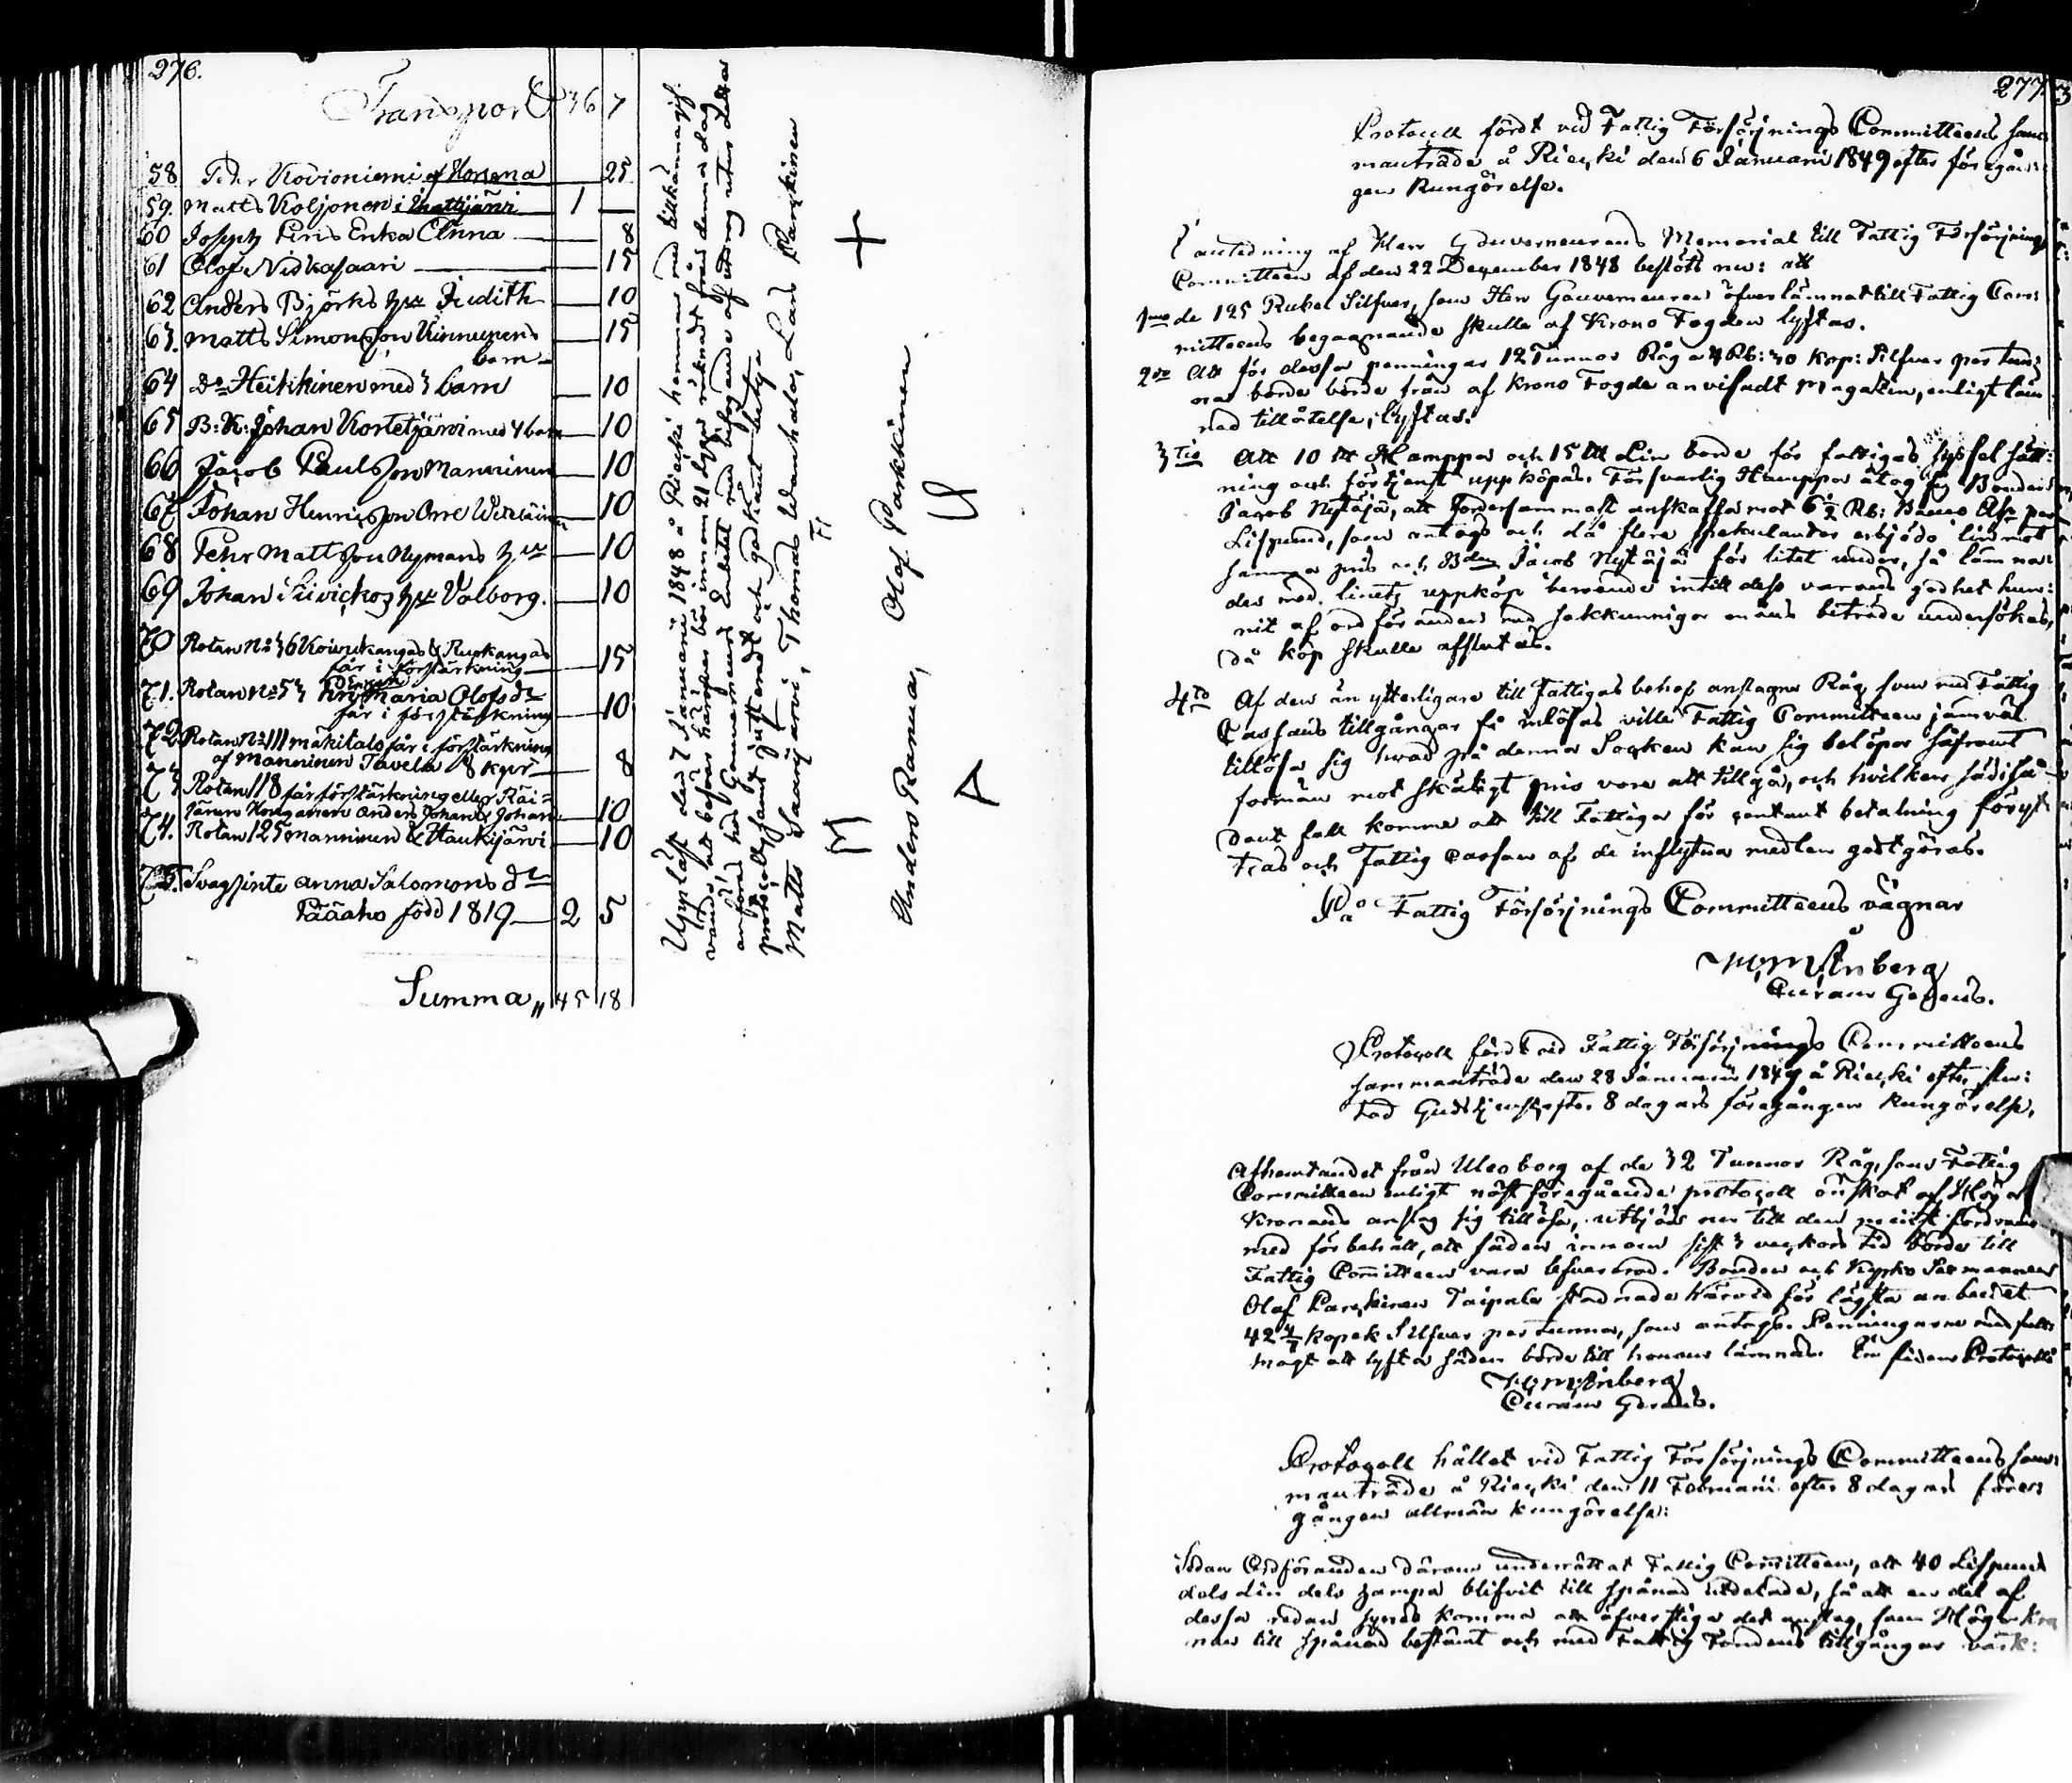 276.
Transport 36 7
58 Pehr Kovioniemi af Horsma 25
59. Matts Koljonen i Mattjärvi 1 —
60 Joseph Piris Enka Anna — 8
61 Olof Nidkasaari — 15
62 Anders Björks hu Judith — 10
63. Matts Simonsson Kinnunens
barn — 15
64 Do Heikkinen med 3 barn — 10
65 B: K: Johan Kortetjärvi med 4 barn — 10
66 Jacob Paulsson Manninen — 10
67 Johan Henricsson Orre — 10
68 Pehr Mattsson Nymans hu — 10
69 Johan Siivickos hu Valborg. — 10
70 Rotan No 36 Koivukangas & Ruokangas
får i förstärkning — 15
71. Rotan No 53 Maria Olofsdr
får i förstärkning 10
72. Rotan No 111 Mäkitalo får i förstärkning
af Manninen Tavela 8 kpr — 8
73 Rotan 118 får förstärkning eller Räi-
sänen Honganen Anders Johan & Johan — 10
74. Rotan 125 Manninen & Haukijärvi — 10
75. Svagsinte Anna Salomonsdr
Pääaho född 1819 — 2 5
Summa „ 45 18
Uppläst den 7 Januarii 1848 å Pieiski hemman med tillkännagif-
vande, att besvär häröfver bör innom 21 dagar räknadt från denna dag
anföras hos Gouverneurs Embetet med bifogande af utdrag utur detta
protocoll, samt justeradt och godkänt betyga
Matts Saarijärvi, Thomas Wanhala, Lars Karskinen
M F +
Anders Ranua, Olof Parkkinen
A
277
Protocoll fördt vid Fattig Försörjnings Committeens sam-
manträde å Pieiski den 6 Januari 1849 efter föregån-
gen Kungörelse.
I anledning af Herr Gouverneurens Memorial till Fattig Försörjnings
Committeen af den 22 December 1848 beslöts nu: att
1mo de 125 Rubel Silfver, som Herr Gouverneuren öfverlämnat till Fattig Com-
mitteens begagnande skulle af Krono Fogden lyftas.
2do Att för dessa penningar 12 Tunnor Råg a 4 Rb: 30 kop: Silfver per tun-
na borde från af Krono Fogde anvisadt Magasin, enligt läm-
nad tillåtelse, lyftas.
3tio Att 10 ℔ Hamppa och 15 ℔ Lin borde för fattigas syssel sätt-
ning och förtjenst uppköpas. Försvarlig Hamppa åtog sig Bonden
Jacob Nyläjä, att fordersammast anskaffa mot 6½ Rb: Banco Ass per
Lispund, som antogs och då flere spekulanter erbjödo lin mot
samma pris och Bden Jacob Nyläjä för litet under, så lämna-
des med linets uppköp beroende intill dess varans godhet hun-
nit af ordföranden med sakkunniga mäns biträde undersökas,
då köp skulle afslutas.
4to Af den än ytterligare till Fattigas behof anslagna Råg, som med Fattig
Cassans tillgångar få inlösas ville Fattig Committeen jämväl
tillösa sig hvad på denna Socken kan sig belöpa såframt
förmån mot skäligt pris vore att tillgå, och hvilken säd i så-
dant fall komme att till Fattiga för contant betalning föryt-
tras och Fattig Cassan af de inflytna medlen godtgöras.
På Fattig Försörjnings Committeens vägnar
Curam Gerens.
Protocoll fördt vid Fattig Försörjnings Committeens
sammanträde den 28 Januarii 1849 å Pieiski efter slu-
tad Gudstjenst efter 8 dagars föregången kungörelse,
Afhemtandet från Uleoborg af de 32 Tunnor Råg, som Fattig
Committeen enligt näst föregående protocoll önskat af Höga
Kronans anslag sig tillösa, utbjöds nu till den minst fordrande
med förbehåll, att säden innom sist 3 veckors tid borde till
Fattig Committeen vara lefvererad. Bonden och Kyrko Sexmannen
Olof Karskinen Taipale stadnade härvid för lägsta anbudet
42 4/7 kopek Silfver per tunna, som antogs. Penningarne med full-
magt att lyfta säden borde till honom lämnas. In fidem Protocolli
Curam Gerens.
Protocoll hållet vid Fattig Försörjnings Committeens sam-
manträde å Pieiski den 11 Februarii efter 8 dagars före-
gången allmän kungörelse:
Sedan Ordföranden därom underrättat Fattig Committeen, att 40 Lispund
dels Lin dels hampa blifvit till spånad utdelade, så att en del af
dessa redan synes komma att öfverstiga det anslag, som Höga Kro-
nan till spånad bestämt och med Fattig Fondens tillgångar värk-